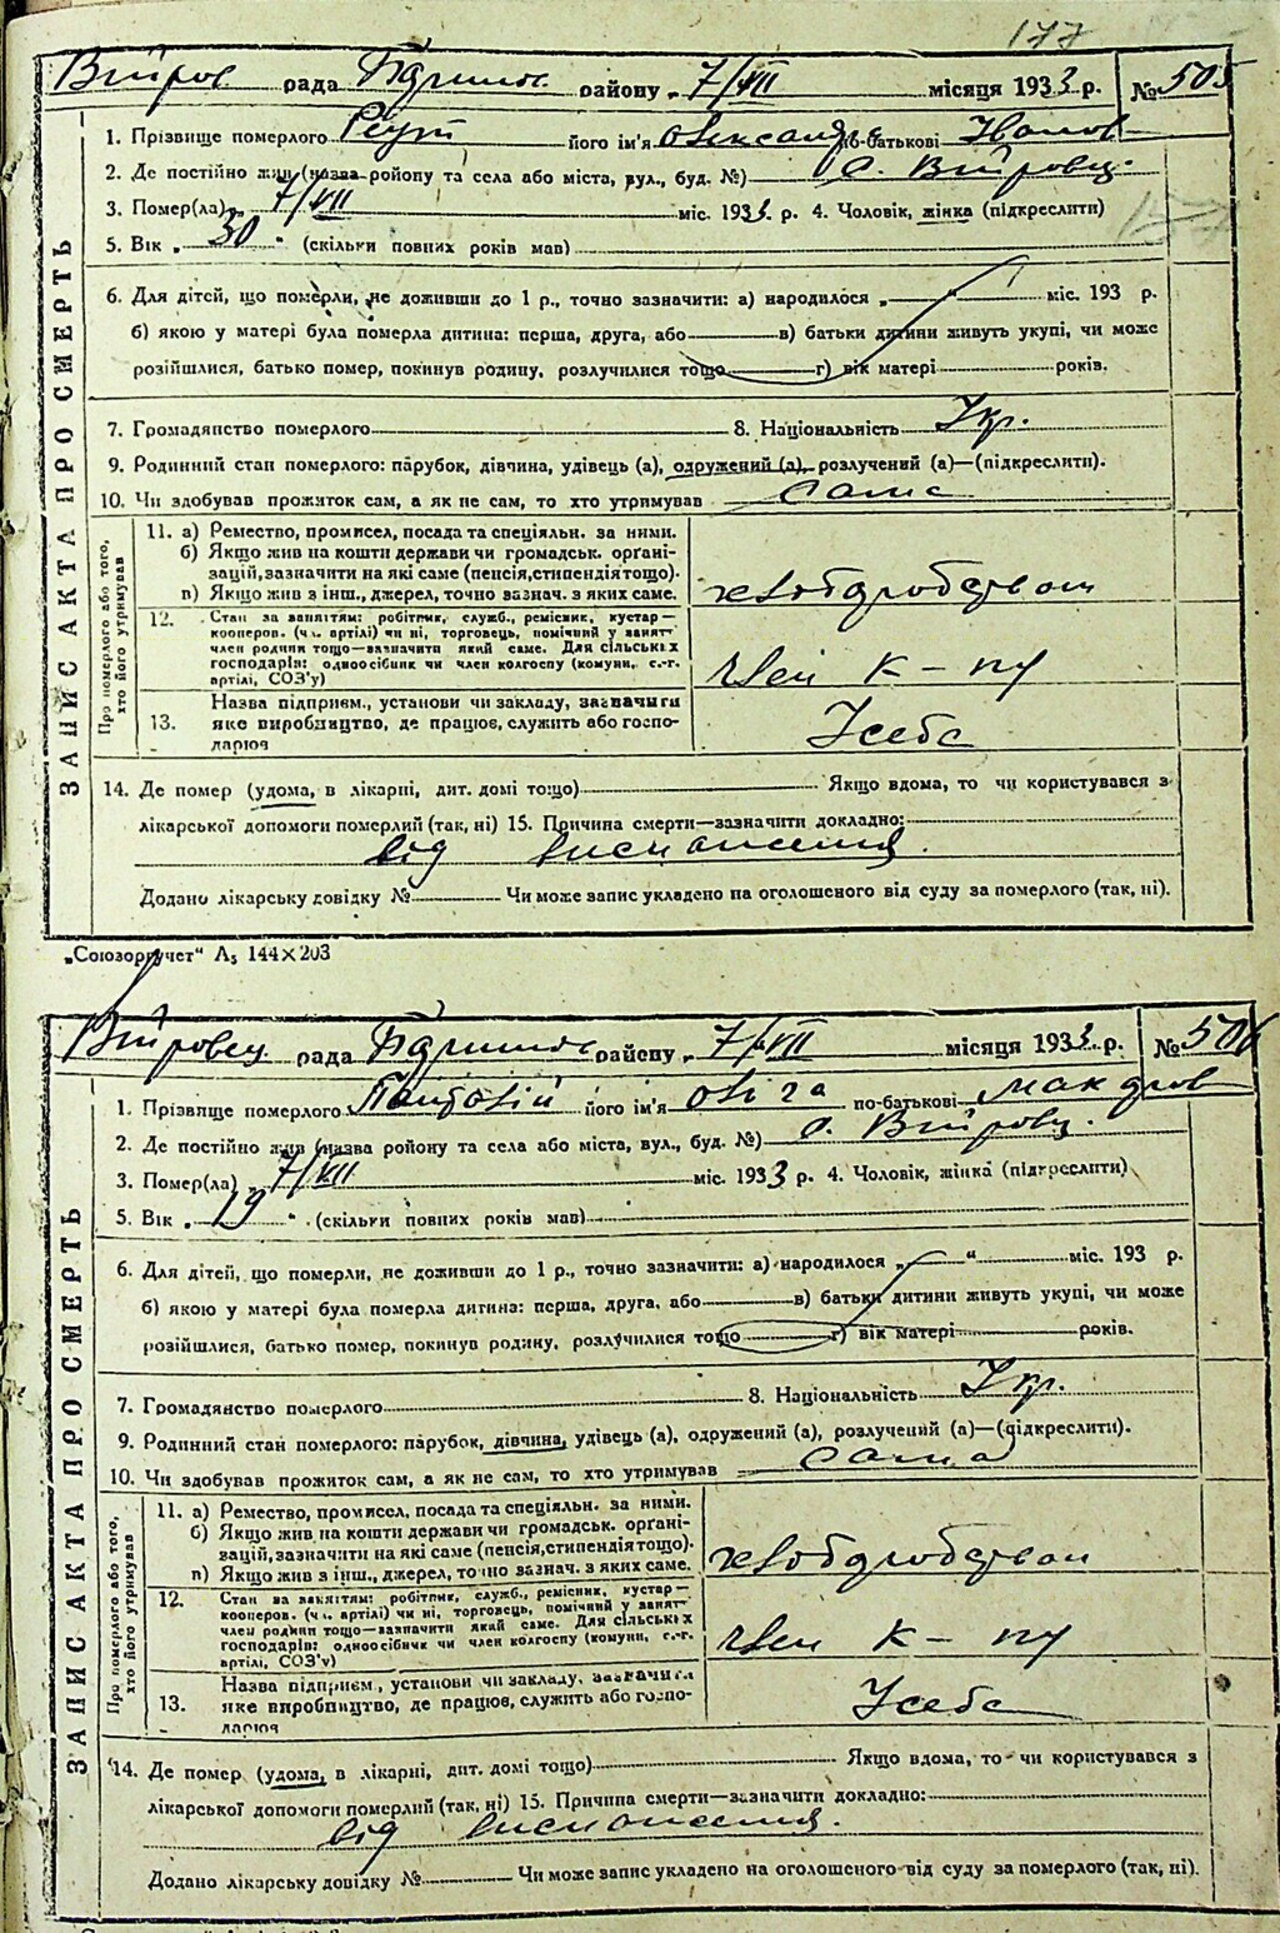 177
рада району „ 7/VII місяця 1933 р. № 505
1. Прізвище померлого Реут його ім'я Олександра по-батькові Іванов
2. Де постійно жив (назва району та села або міста, вул., буд. №) с. Війтовц.
3. Помер(ла) „ 7/VII міс. 1933 р. 4. Чоловік, жінка (підкреслити)
5. Вік „ 30 " (скільки повних років мав)
6. Для дітей, що померли, не доживши до 1 р., точно зазначити: а) народилося „ " міс. 193 р.
б) якою у матері була померла дитина: перша, друга, або в) батьки дитини живуть укупі, чи може
розійшлися, батько помер, покинув родину, розлучилися тощо г) вік матері років.
7. Громадянство померлого 8. Національність Укр.
9. Родинний стан померлого: парубок, дівчина, удівець (а), одружений (а), розлучений (а)—(підкреслити).
10. Чи здобував прожиток сам, а як не сам, то хто утримував сама
ЗАПИС АКТА ПРО СМЕРТЬ
Про померлого або того, хто його утримував
11. а) Ремество, промисел, посада та спеціяльн. за ними.
б) Якщо жив на кошти держави чи громадськ. орґані-
зацій, зазначити на які саме (пенсія, стипендія тощо).
в) Якщо жив з інш., джерел, точно зазнач. з яких саме.
хлібаробством
12. Стан за заняттям: робітник, служб., ремісник, кустар—
кооперов. (чл. артілі) чи ні, торговець, помічний у занят—
член родини тощо—зазначити який саме. Для сільських
господарів: одноосібник чи член колгоспу (комуни, с.-г.
артілі, СОЗ'у)
член к-пу
13. Назва підприєм., установи чи закладу, зазначити
яке виробництво, де працює, служить або госпо-
дарює
У себе
14. Де помер (удома, в лікарні, дит. домі тощо) Якщо вдома, то чи користувався з
лікарської допомоги померлий (так, ні) 15. Причина смерти—зазначити докладно:
від виснаження.
Додано лікарську довідку № Чи може запис укладено на оголошеного від суду за померлого (так, ні).
„Союзоргучет" А₅ 144×203
рада району „ 7/VII місяця 1933 р. № 506
1. Прізвище померлого його ім'я Ольга по-батькові
2. Де постійно жив (назва району та села або міста, вул., буд. №) с. Війтовц.
3. Помер(ла) „ 7/VII міс. 1933 р. 4. Чоловік, жінка (підкреслити)
5. Вік „ 19 " (скільки повних років мав)
6. Для дітей, що померли, не доживши до 1 р., точно зазначити: а) народилося „ " міс. 193 р.
б) якою у матері була померла дитина: перша, друга, або в) батьки дитини живуть укупі, чи може
розійшлися, батько помер, покинув родину, розлучилися тощо г) вік матері років.
7. Громадянство померлого 8. Національність Укр.
9. Родинний стан померлого: парубок, дівчина, удівець (а), одружений (а), розлучений (а)—(підкреслити).
10. Чи здобував прожиток сам, а як не сам, то хто утримував сама
ЗАПИС АКТА ПРО СМЕРТЬ
Про померлого або того, хто його утримував
11. а) Ремество, промисел, посада та спеціяльн. за ними.
б) Якщо жив на кошти держави чи громадськ. орґані-
зацій, зазначити на які саме (пенсія, стипендія тощо).
в) Якщо жив з інш., джерел, точно зазнач. з яких саме.
хлібаробством
12. Стан за заняттям: робітник, служб., ремісник, кустар—
кооперов. (чл. артілі) чи ні, торговець, помічний у занят—
член родини тощо—зазначити який саме. Для сільських
господарів: одноосібник чи член колгоспу (комуни, с.-г.
артілі, СОЗ'у)
член к-пу
13. Назва підприєм., установи чи закладу, зазначити
яке виробництво, де працює, служить або госпо-
дарює
У себе
14. Де помер (удома, в лікарні, дит. домі тощо) Якщо вдома, то чи користувався з
лікарської допомоги померлий (так, ні) 15. Причина смерти—зазначити докладно:
від виснаження.
Додано лікарську довідку № Чи може запис укладено на оголошеного від суду за померлого (так, ні).